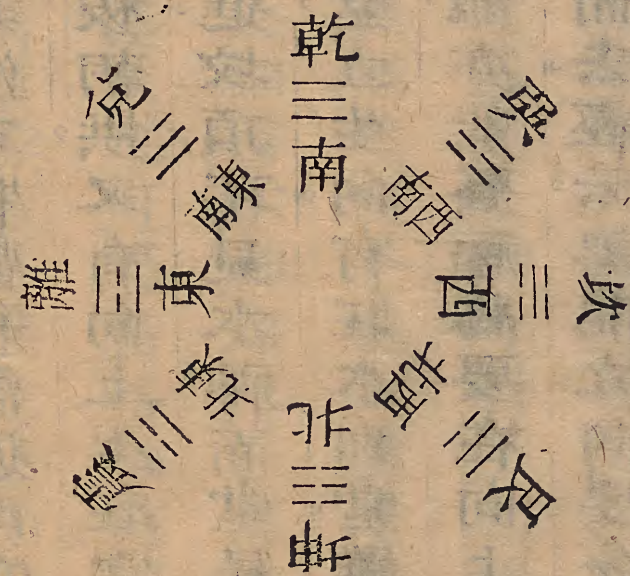 乾
☰
南
巽
☴
西南
坎
☵
西
艮
☶
西北
坤
☷
北
震
☳
東北
離
☲
東
兌
☱
東南